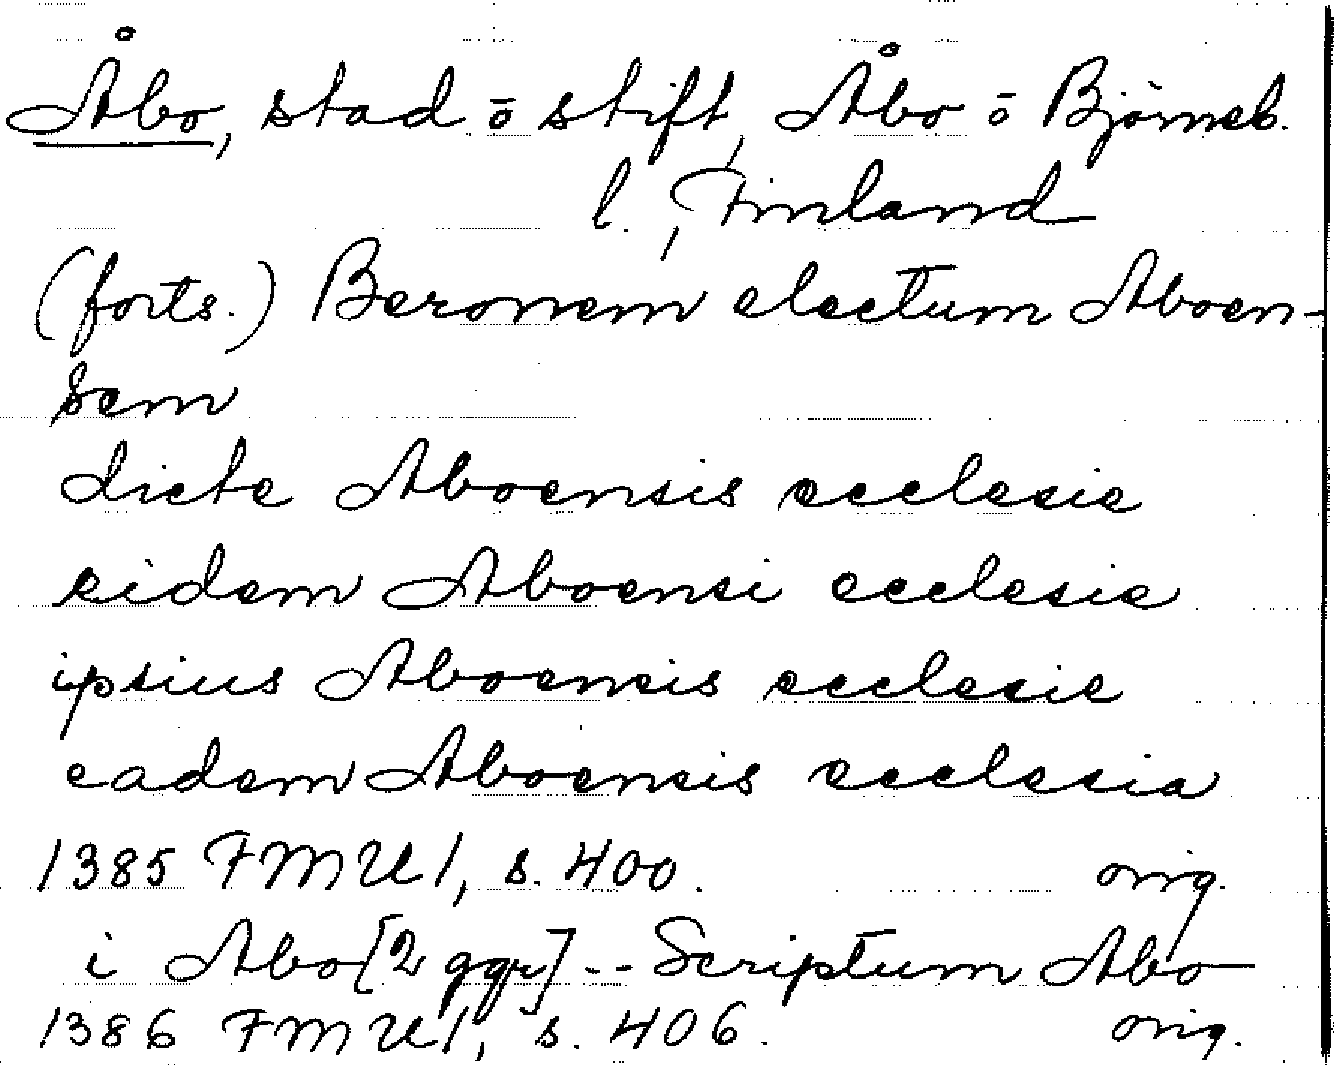 Åbo, stad ō stift, Åbo ō Björneb.
l., Finland
(forts.) Beronem electum Aboen-
sem
dicte Aboensis ecclesie
eidem Aboensi ecclesie
ipsius Aboensis ecclesie
eadem Aboensis ecclesia
1385 FMU 1, s. 400. orig.
i Abo [2 ggr] -- Scriptum Abo
1386 FMU 1, s. 406. orig.